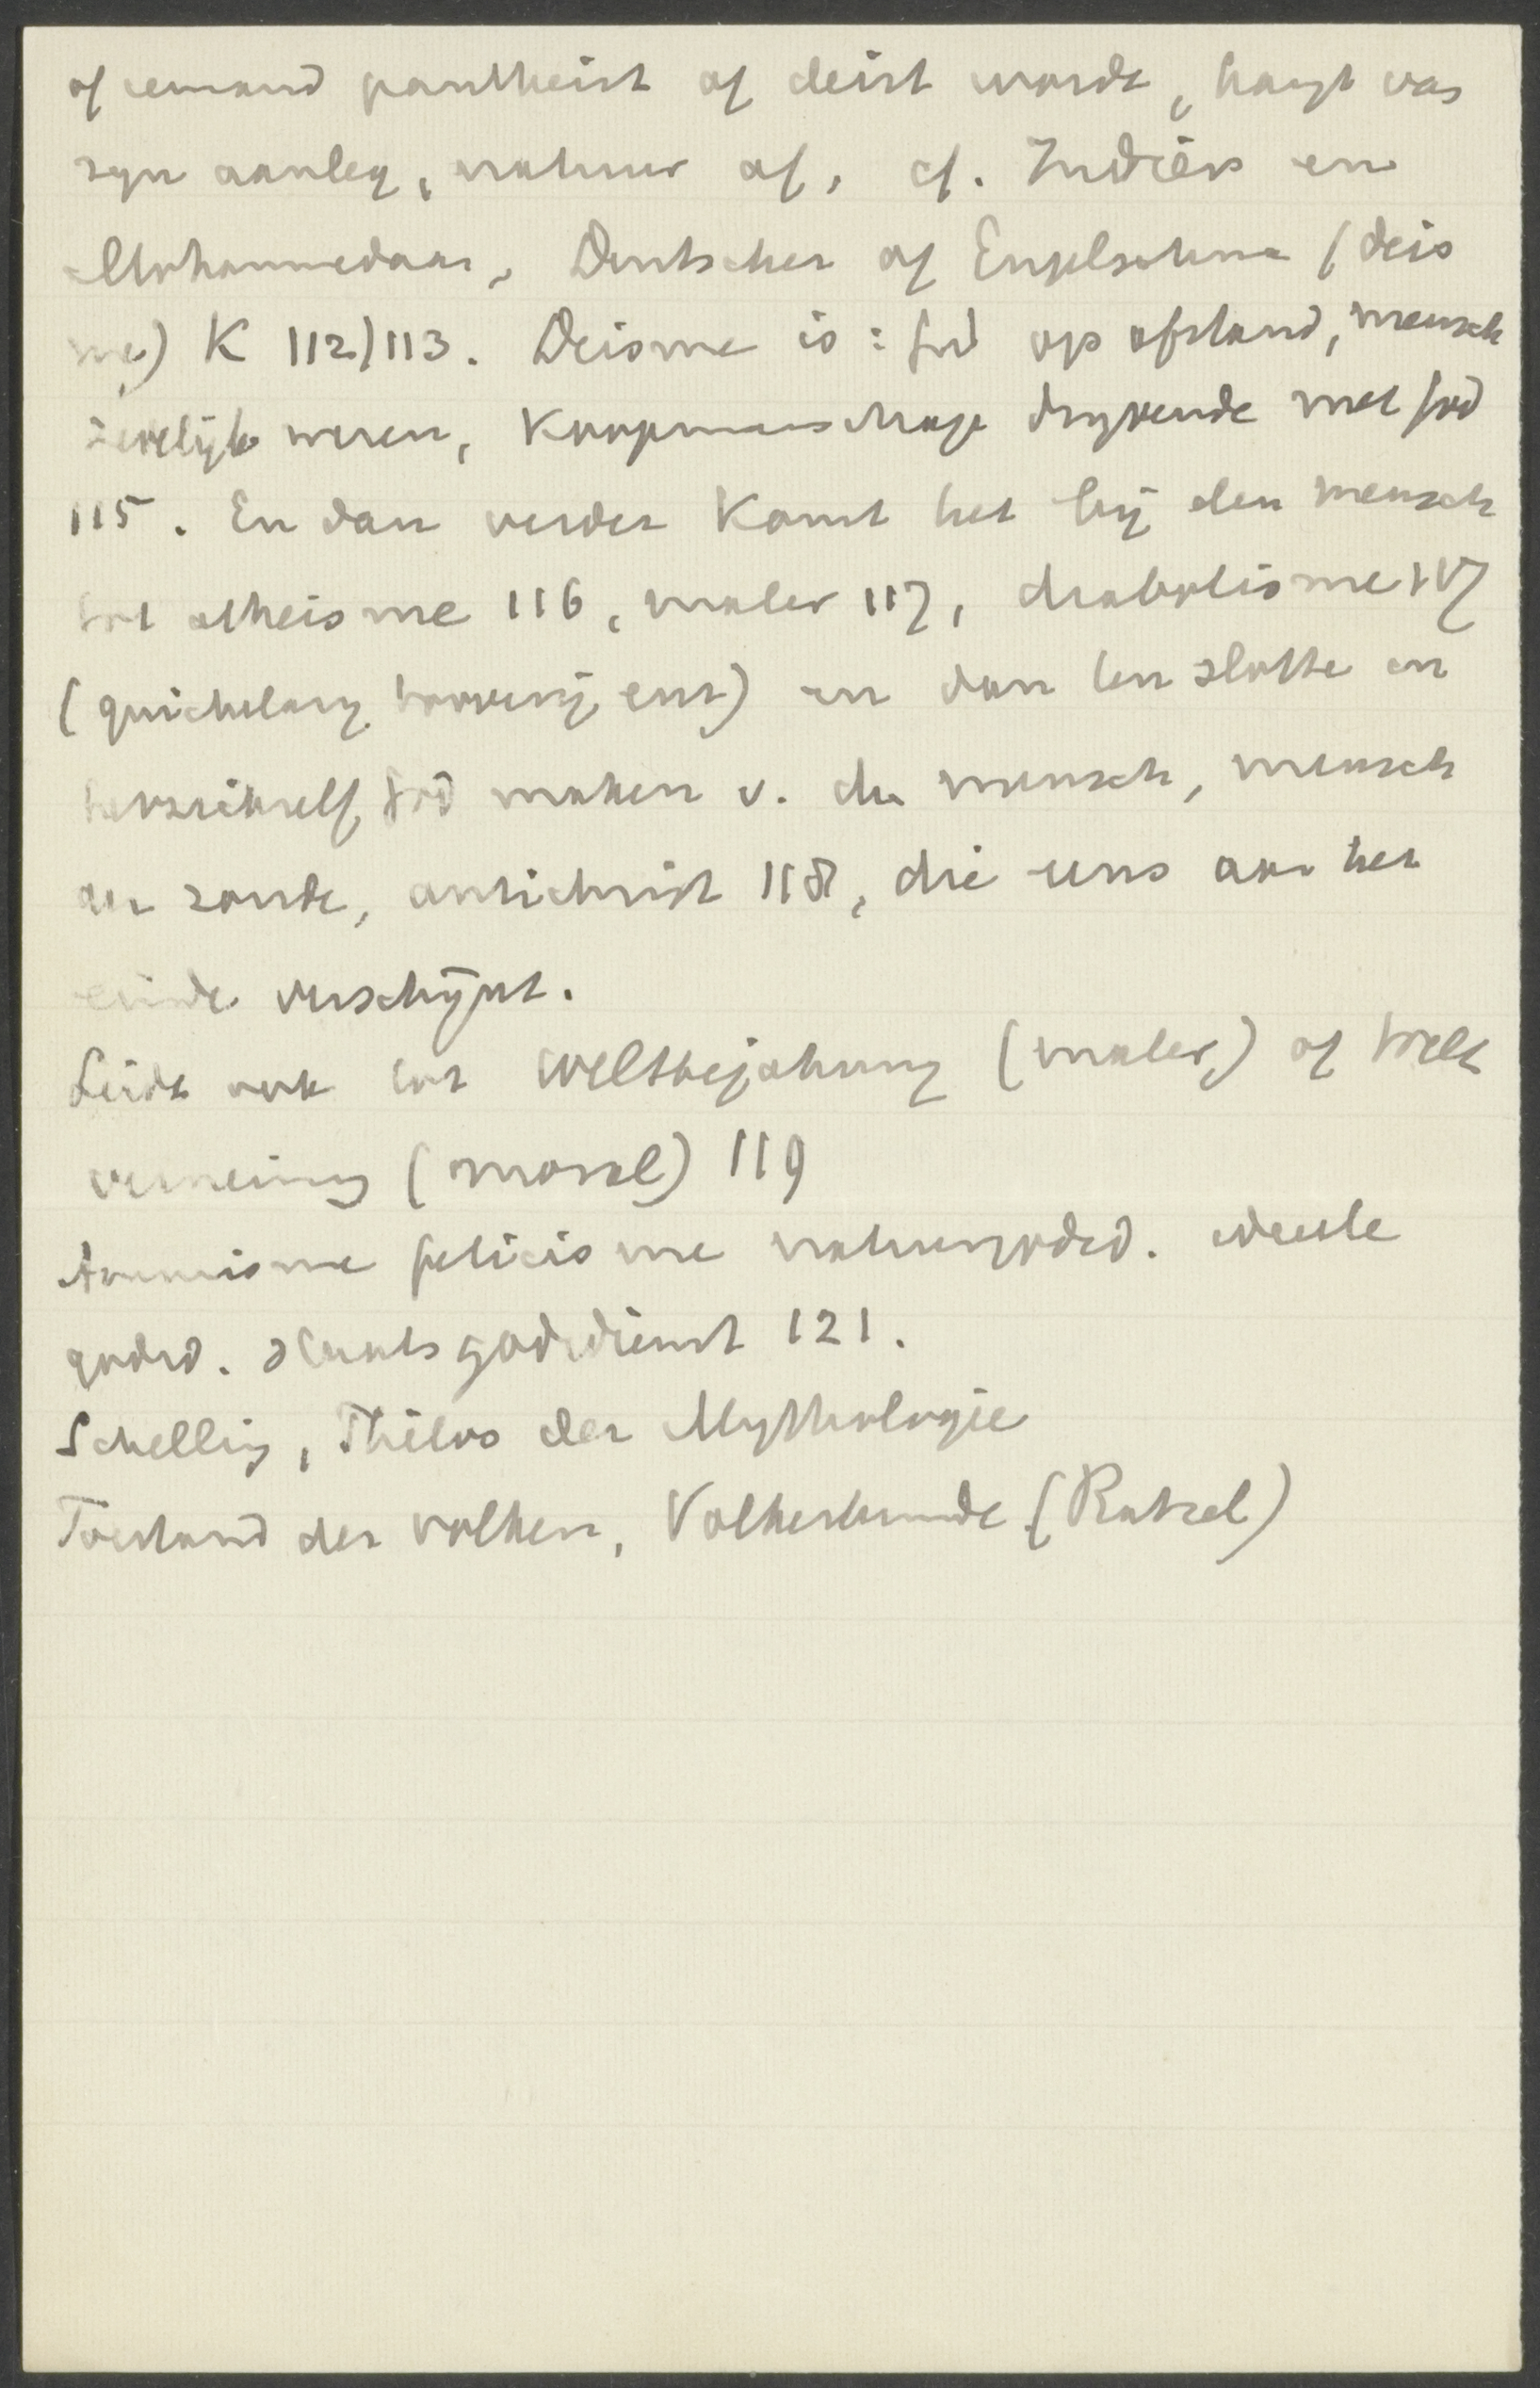 of iemand pantheist of deist wordt, hangt van
zyn aanleg, natuur af, cf. Indiër en
Mohammedaan, Duitscher of Engelschman (deis
me) K 112/113. Deisme is: God op afstand, mensch
zedelijk wezen, koopmanschap dryvende met God
115. En dan verder komt het bij den mensch
tot atheisme 116, mater 117, diabolisme 117
(guichelary tooverij, enz) en dan ten slotte en
tot zichzelf God maken v. den mensch, mensch
der zonde, antichrist 118, die eens aan het
einde verschijnt.
Leidt ook tot Weltbejahung (mater) of Welt
verneinung (moral) 119
Animisme feticisme natuurgodsd. ideeele
godsd. staatsgodsdienst 121.
Schelling, Philos der Mythologie
Toestand der volken, Volkerkunde (Ratzel)